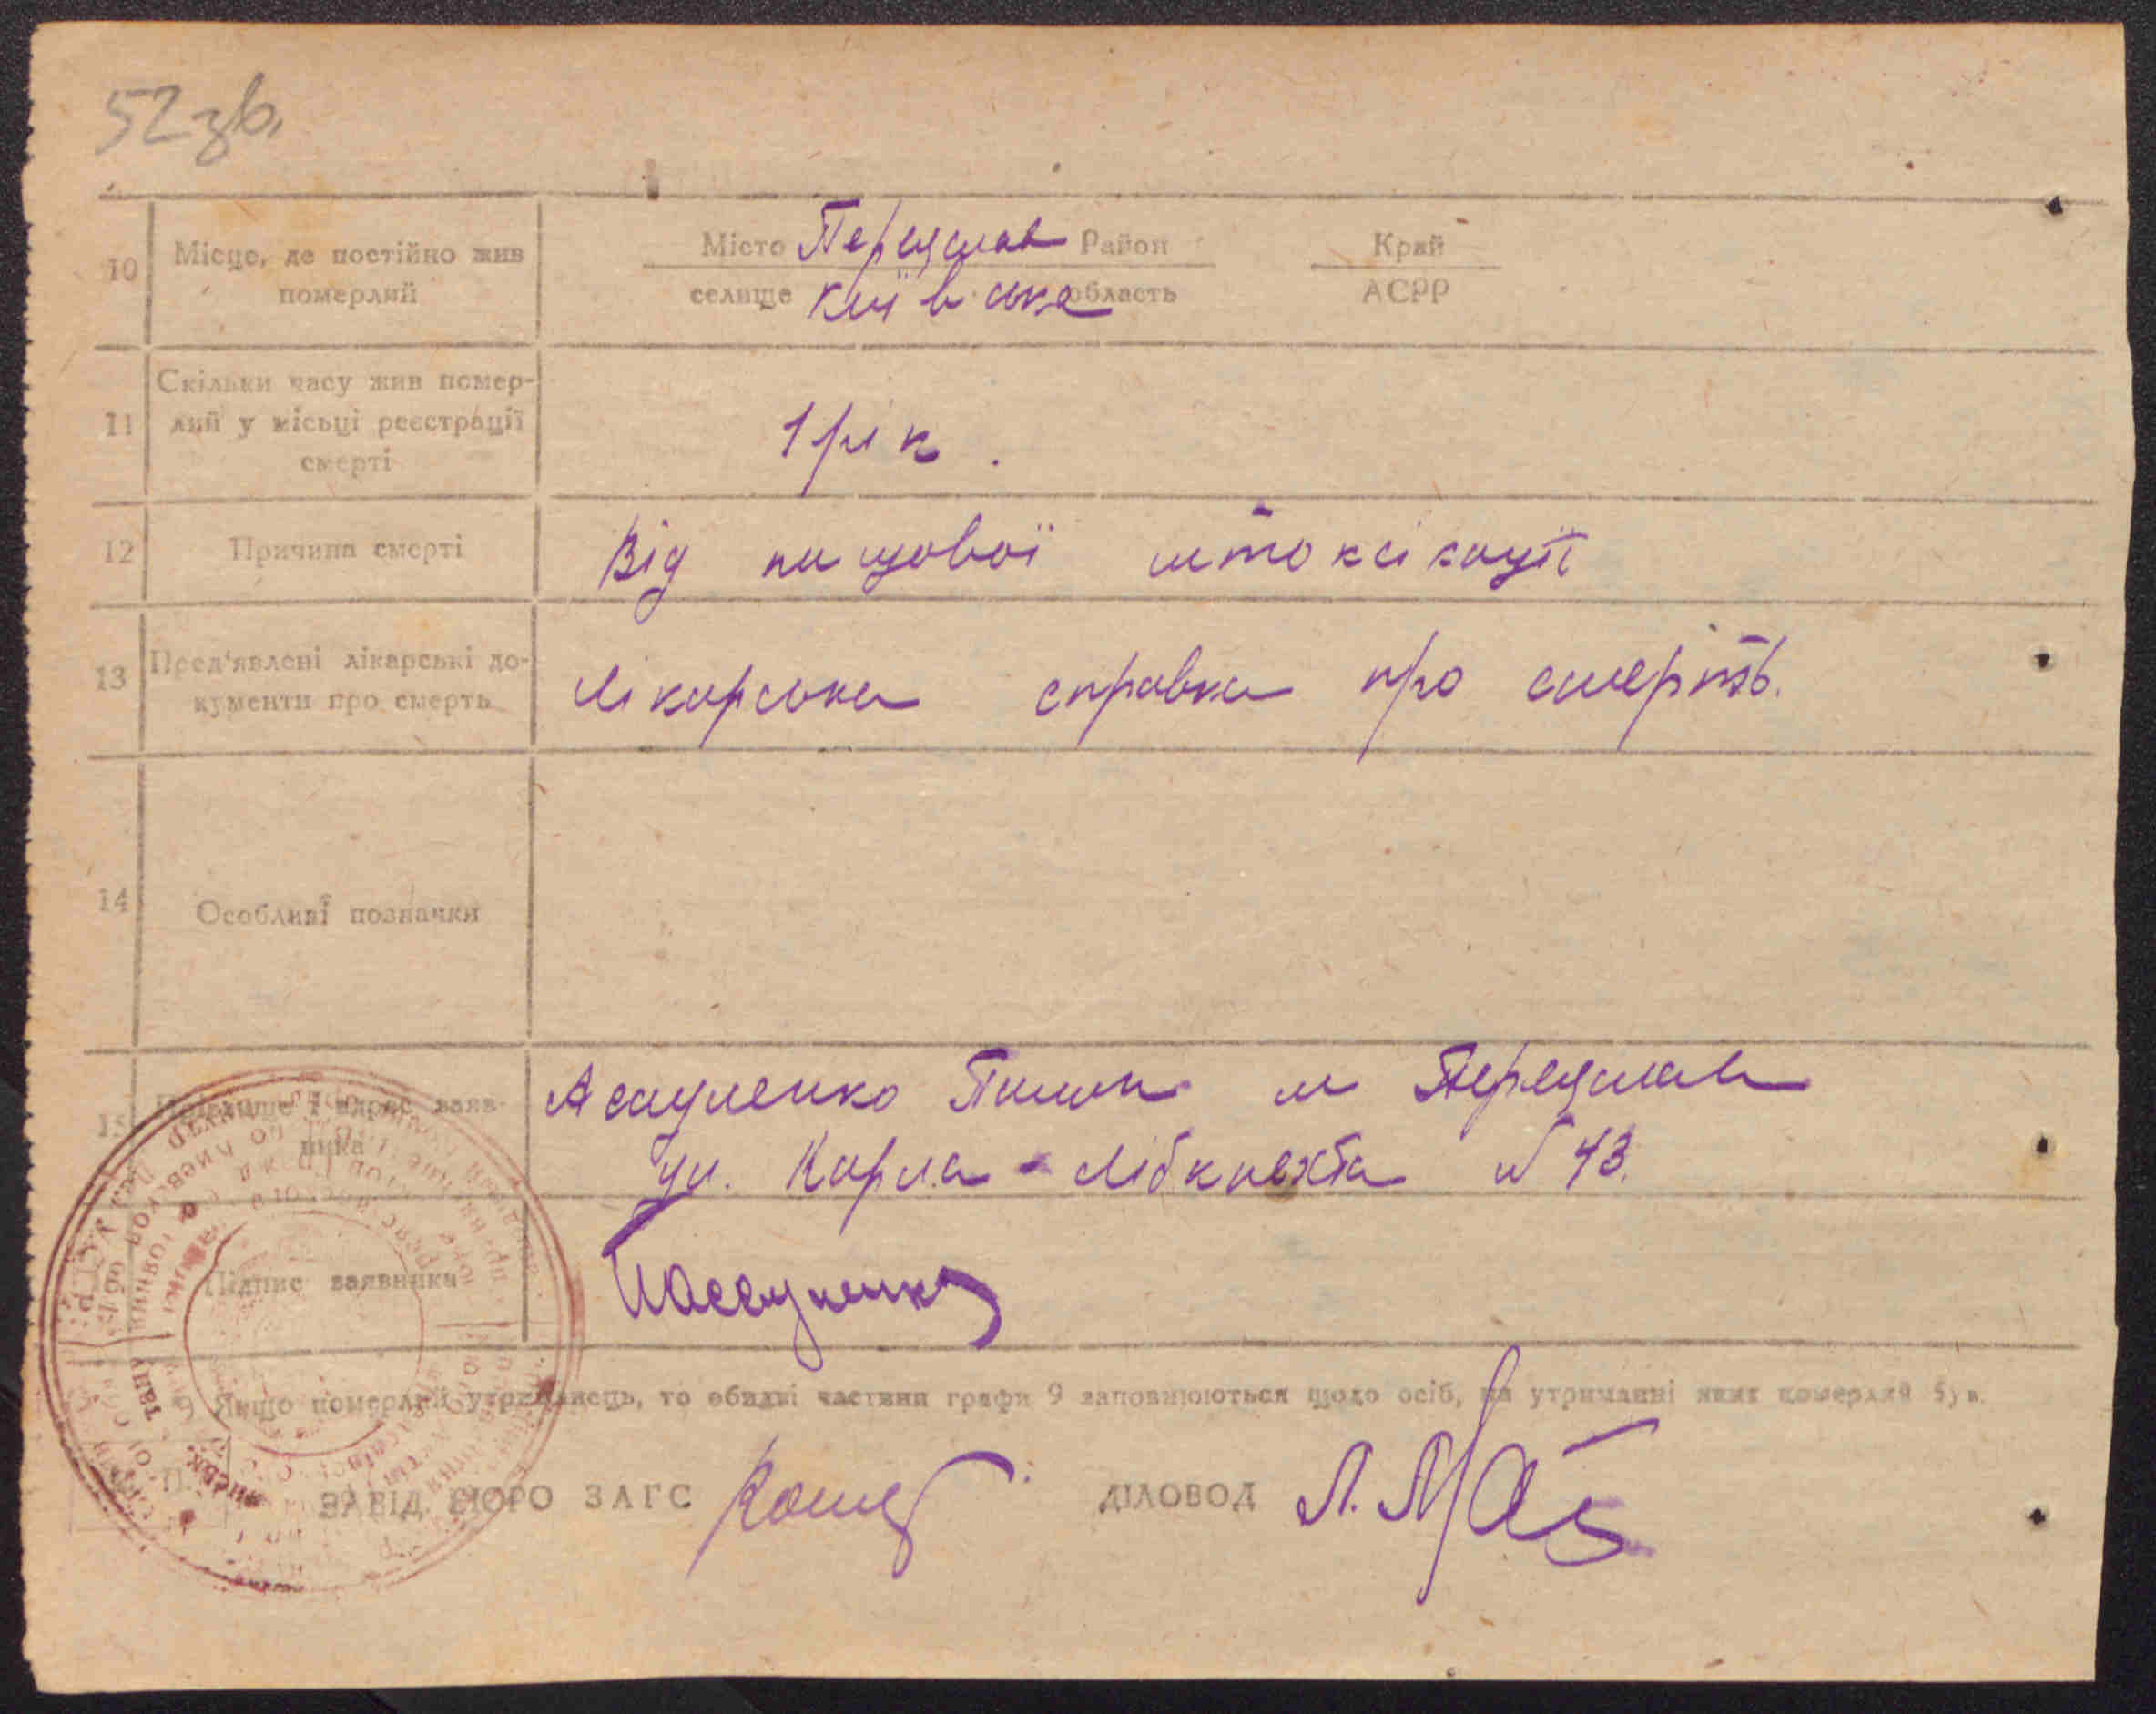 52 зв.
10 Місце, де постійно жив померлий
Місто Переяслав Район Край
селище Київська область АСРР
11 Скільки часу жив помер-
лий у місьці реєстрації
смерті
1 рік.
12 Причина смерті
Від пищової интоксікації
13 Пред'явлені лікарські до-
кументи про смерть
Лікарська справка про смерть.
14 Особливі позначки
15 Прізвище і адрес заяв-
ника
Асауленко м Переяслав
ул. Карла-Лібкнехта № 43.
Підпис заявника
Асауленко
9 Якщо померлий утриманець, то обидві частини графи 9 заповнюються щодо осіб, на утриманні яких померлий був.
ЗАВІД. БЮРО ЗАГС ДІЛОВОД